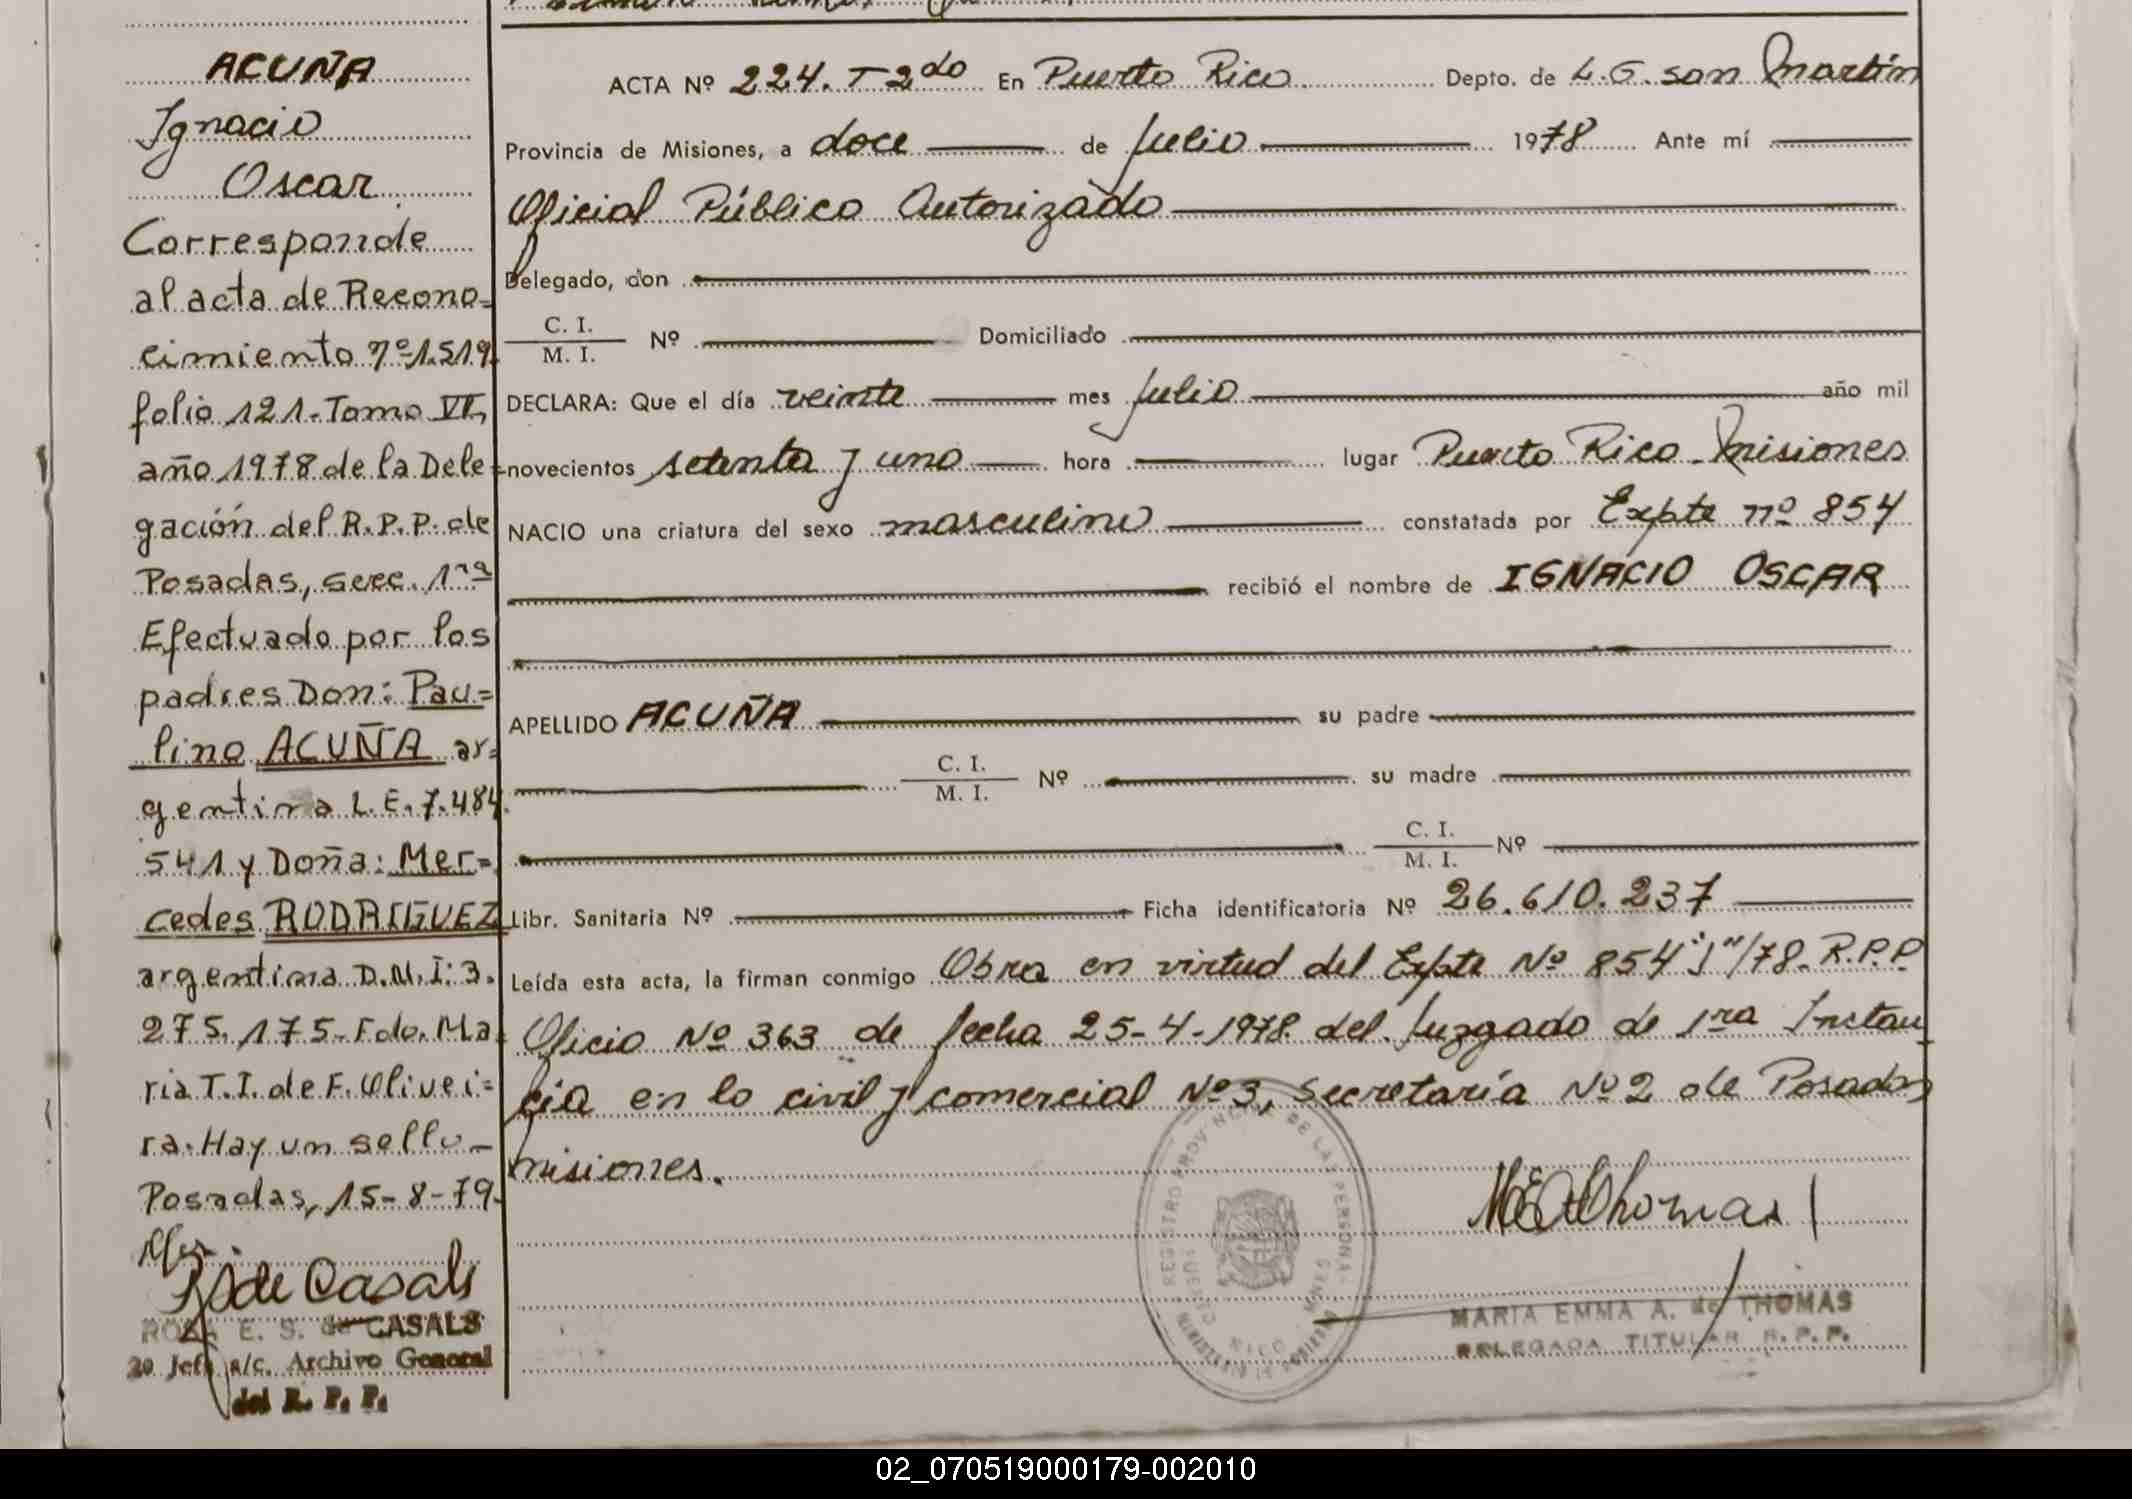 ACUÑA
Ignacio
Oscar
Corresponde
al acta de Recono=
cimiento nº 1.519
folio 121. Tomo VI,
año 1978 de la Dele=
gación del R.P.P. de
Posadas, secc. 1ra
Efectuado por los
padres Don: Pau=
lino ACUÑA ar=
gentina L.E. 7.484.
541 y Doña: Mer=
cedes RODRIGUEZ
argentina D.N.I: 3.
275.175.- Fdo. Ma
ria T.I. de F. Olivei=
ra. Hay un sello_
Posadas, 15-8-79.
de Casals
ROSA E. S. de CASALS
2o Jefe a/c. Archivo General
del R. P. P.
ACTA Nº 224. T 2do En Puerto Rico Depto. de L.G. san Martín
Provincia de Misiones, a doce de Julio 1978 Ante mí
Oficial Público Autorizado
Delegado, don
C. I.
M. I. Nº Domiciliado
DECLARA: Que el día veinte mes Julio año mil
novecientos setenta y uno hora lugar Puerto Rico - Misiones
NACIO una criatura del sexo masculino constatada por Expte nº 854
recibió el nombre de IGNACIO OSCAR
APELLIDO ACUÑA su padre
C. I.
M. I. Nº su madre
C. I.
M. I. Nº
Libr. Sanitaria Nº Ficha identificatoria Nº 26.610.237
Leída esta acta, la firman conmigo Obra en virtud del Expte Nº 854"J"/78. R.P.P
Oficio Nº 363 de fecha 25-4-1978 del Juzgado de 1ra Instan
cia en lo civil y comercial Nº3, Secretaría Nº2 de Posadas
misiones.
REGISTRO PROVINCIAL DE LAS PERSONAS
MEAThomas
MARIA EMMA A. de THOMAS
DELEGADA TITULAR R. P. P.
02_070519000179-002010